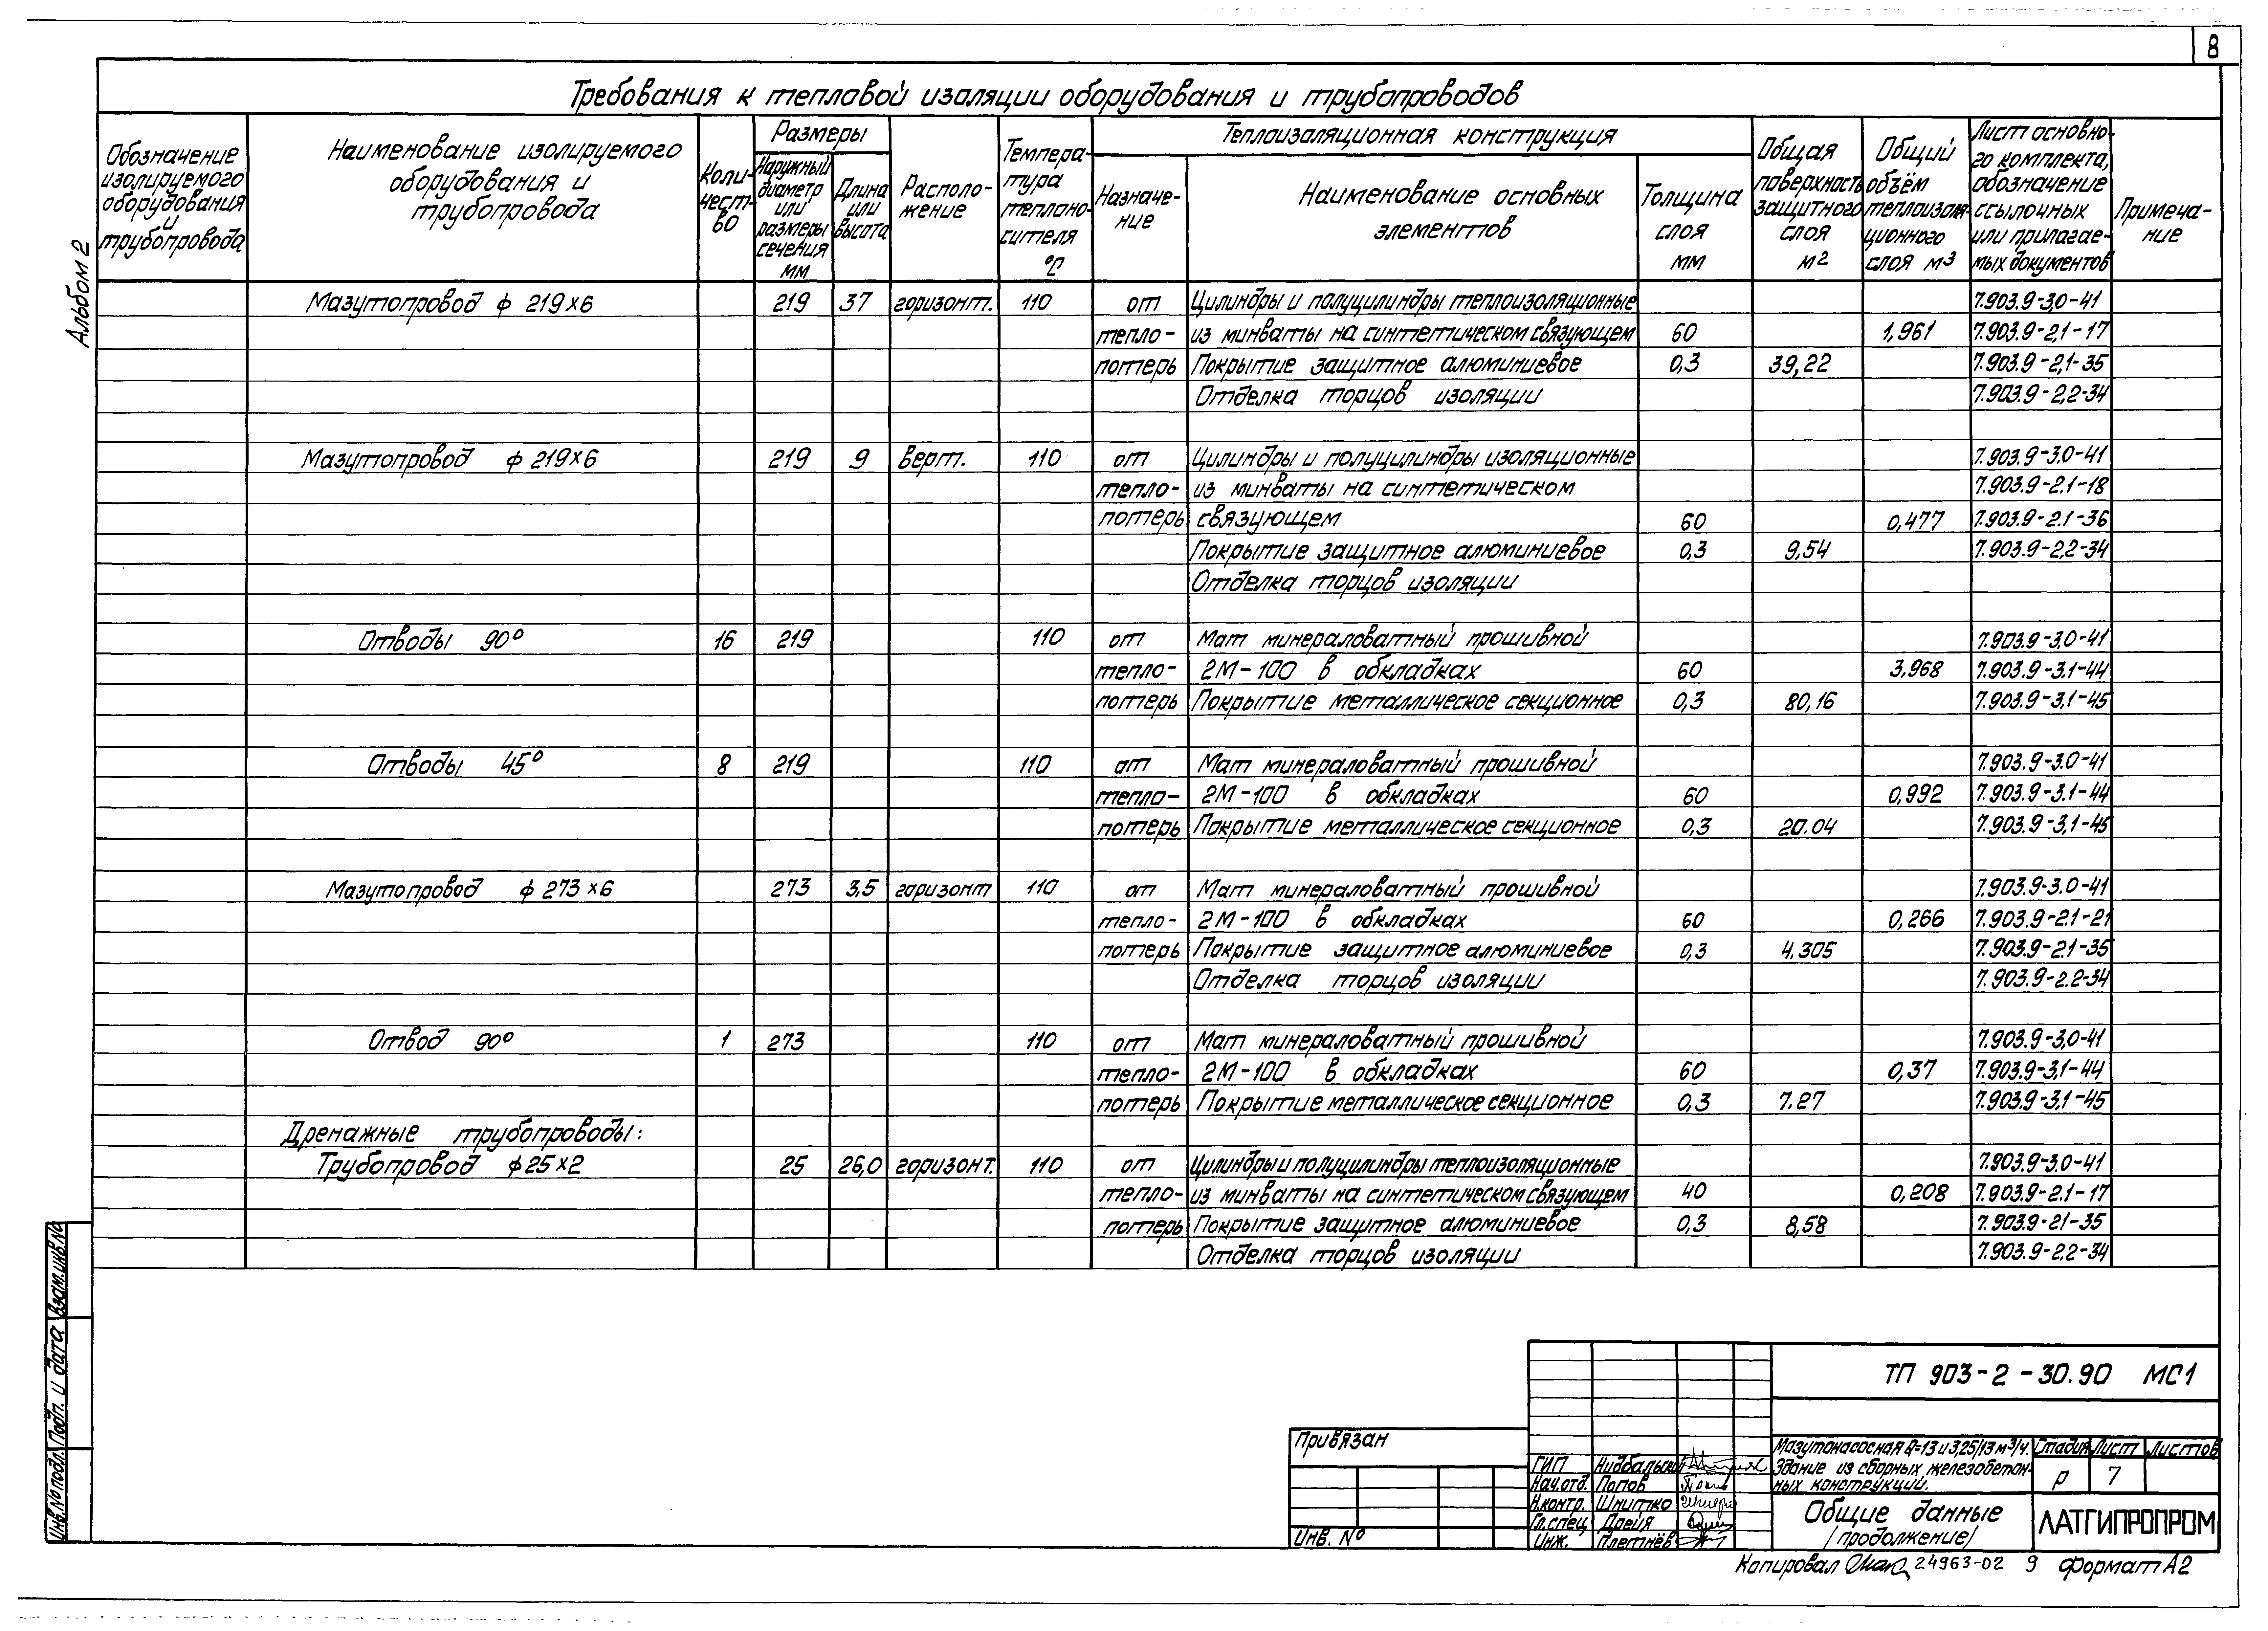 8
Альбом 2
Требования к тепловой изоляции оборудования и трубопроводов
Обозначение изолируемого оборудования и трубопровода
Наименование изолируемого оборудования и трубопровода
Коли-чест-во
Размеры
Наружный диаметр или размеры сечения мм
Длина или высота
Располо-жение
Темпера-тура теплоно-сителя °С
Теплоизоляционная конструкция
Назначе-ние
Наименование основных элементов
Толщина слоя мм
Общая поверхность защитного слоя м2
Общий объём теплоизоля-ционного слоя м3
Лист основно-го комплекта, обозначение ссылочных или прилагае-мых документов
Примеча-ние
Мазутопровод ф 219×6 219 37 горизонт. 110 от Цилиндры и полуцилиндры теплоизоляционные 7.903.9-3,0-41
тепло- из минваты на синтетическом связующем 60 1,961 7.903.9-2,1-17
потерь Покрытие защитное алюминиевое 0,3 39,22 7.903.9-2,1-35
Отделка торцов изоляции 7.903.9-2,2-34
Мазутопровод ф 219×6 219 9 верт. 110 от Цилиндры и полуцилиндры изоляционные 7.903.9-3.0-41
тепло- из минваты на синтетическом 7.903.9-2.1-18
потерь связующем 60 0,477 7.903.9-2.1-36
Покрытие защитное алюминиевое 0,3 9,54 7.903.9-2,2-34
Отделка торцов изоляции
Отводы 90° 16 219 110 от Мат минераловатный прошивной 7.903.9-3,0-41
тепло- 2М-100 в обкладках 60 3,968 7.903.9-3,1-44
потерь Покрытие металлическое секционное 0,3 80,16 7.903.9-3,1-45
Отводы 45° 8 219 110 от Мат минераловатный прошивной 7.903.9-3.0-41
тепло- 2М-100 в обкладках 60 0,992 7.903.9-3.1-44
потерь Покрытие металлическое секционное 0,3 20.04 7.903.9-3,1-45
Мазутопровод ф 273×6 273 3,5 горизонт 110 от Мат минераловатный прошивной 7.903.9-3.0-41
тепло- 2М-100 в обкладках 60 0,266 7.903.9-2.1-21
потерь Покрытие защитное алюминиевое 0,3 4,305 7.903.9-2.1-35
Отделка торцов изоляции 7.903.9-2.2-34
Отвод 90° 1 273 110 от Мат минераловатный прошивной 7.903.9-3,0-41
тепло- 2М-100 в обкладках 60 0,37 7.903.9-3,1-44
потерь Покрытие металлическое секционное 0,3 7.27 7.903.9-3,1-45
Дренажные трубопроводы:
Трубопровод ф25×2 25 26,0 горизонт. 110 от Цилиндры и полуцилиндры теплоизоляционные 7.903.9-3.0-41
тепло- из минваты на синтетическом связующем 40 0,208 7.903.9-2.1-17
потерь Покрытие защитное алюминиевое 0,3 8,58 7.903.9-21-35
Отделка торцов изоляции 7.903.9-2,2-34
Взам.инв.№
Подп. и дата
Инв.№ подл.
Привязан
Инв. №
ГИП Нидбальский
Нач.отд. Попов
Н.контр. Шнитко
Гл.спец. Дрейя
Инж. Плетнёв
ТП 903-2-30.90 МС1
Мазутонасосная Q=13 и 3,25/13 м³/ч.
Здание из сборных железобетон-
ных конструкций.
Стадия Лист Листов
Р 7
Общие данные
/продолжение/
ЛАТГИПРОПРОМ
Копировал 24963-02 9 Формат А2